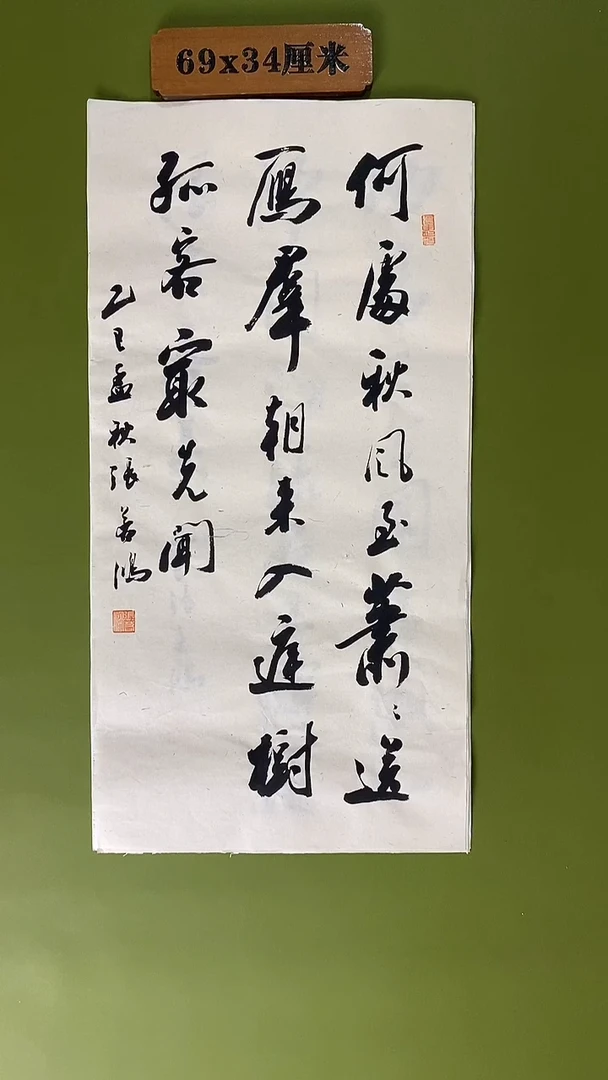 69x34厘米
何處秋風至蕭〻送
鴈羣朝来入庭樹
孤客最先聞
乙巳孟秋張善鴻